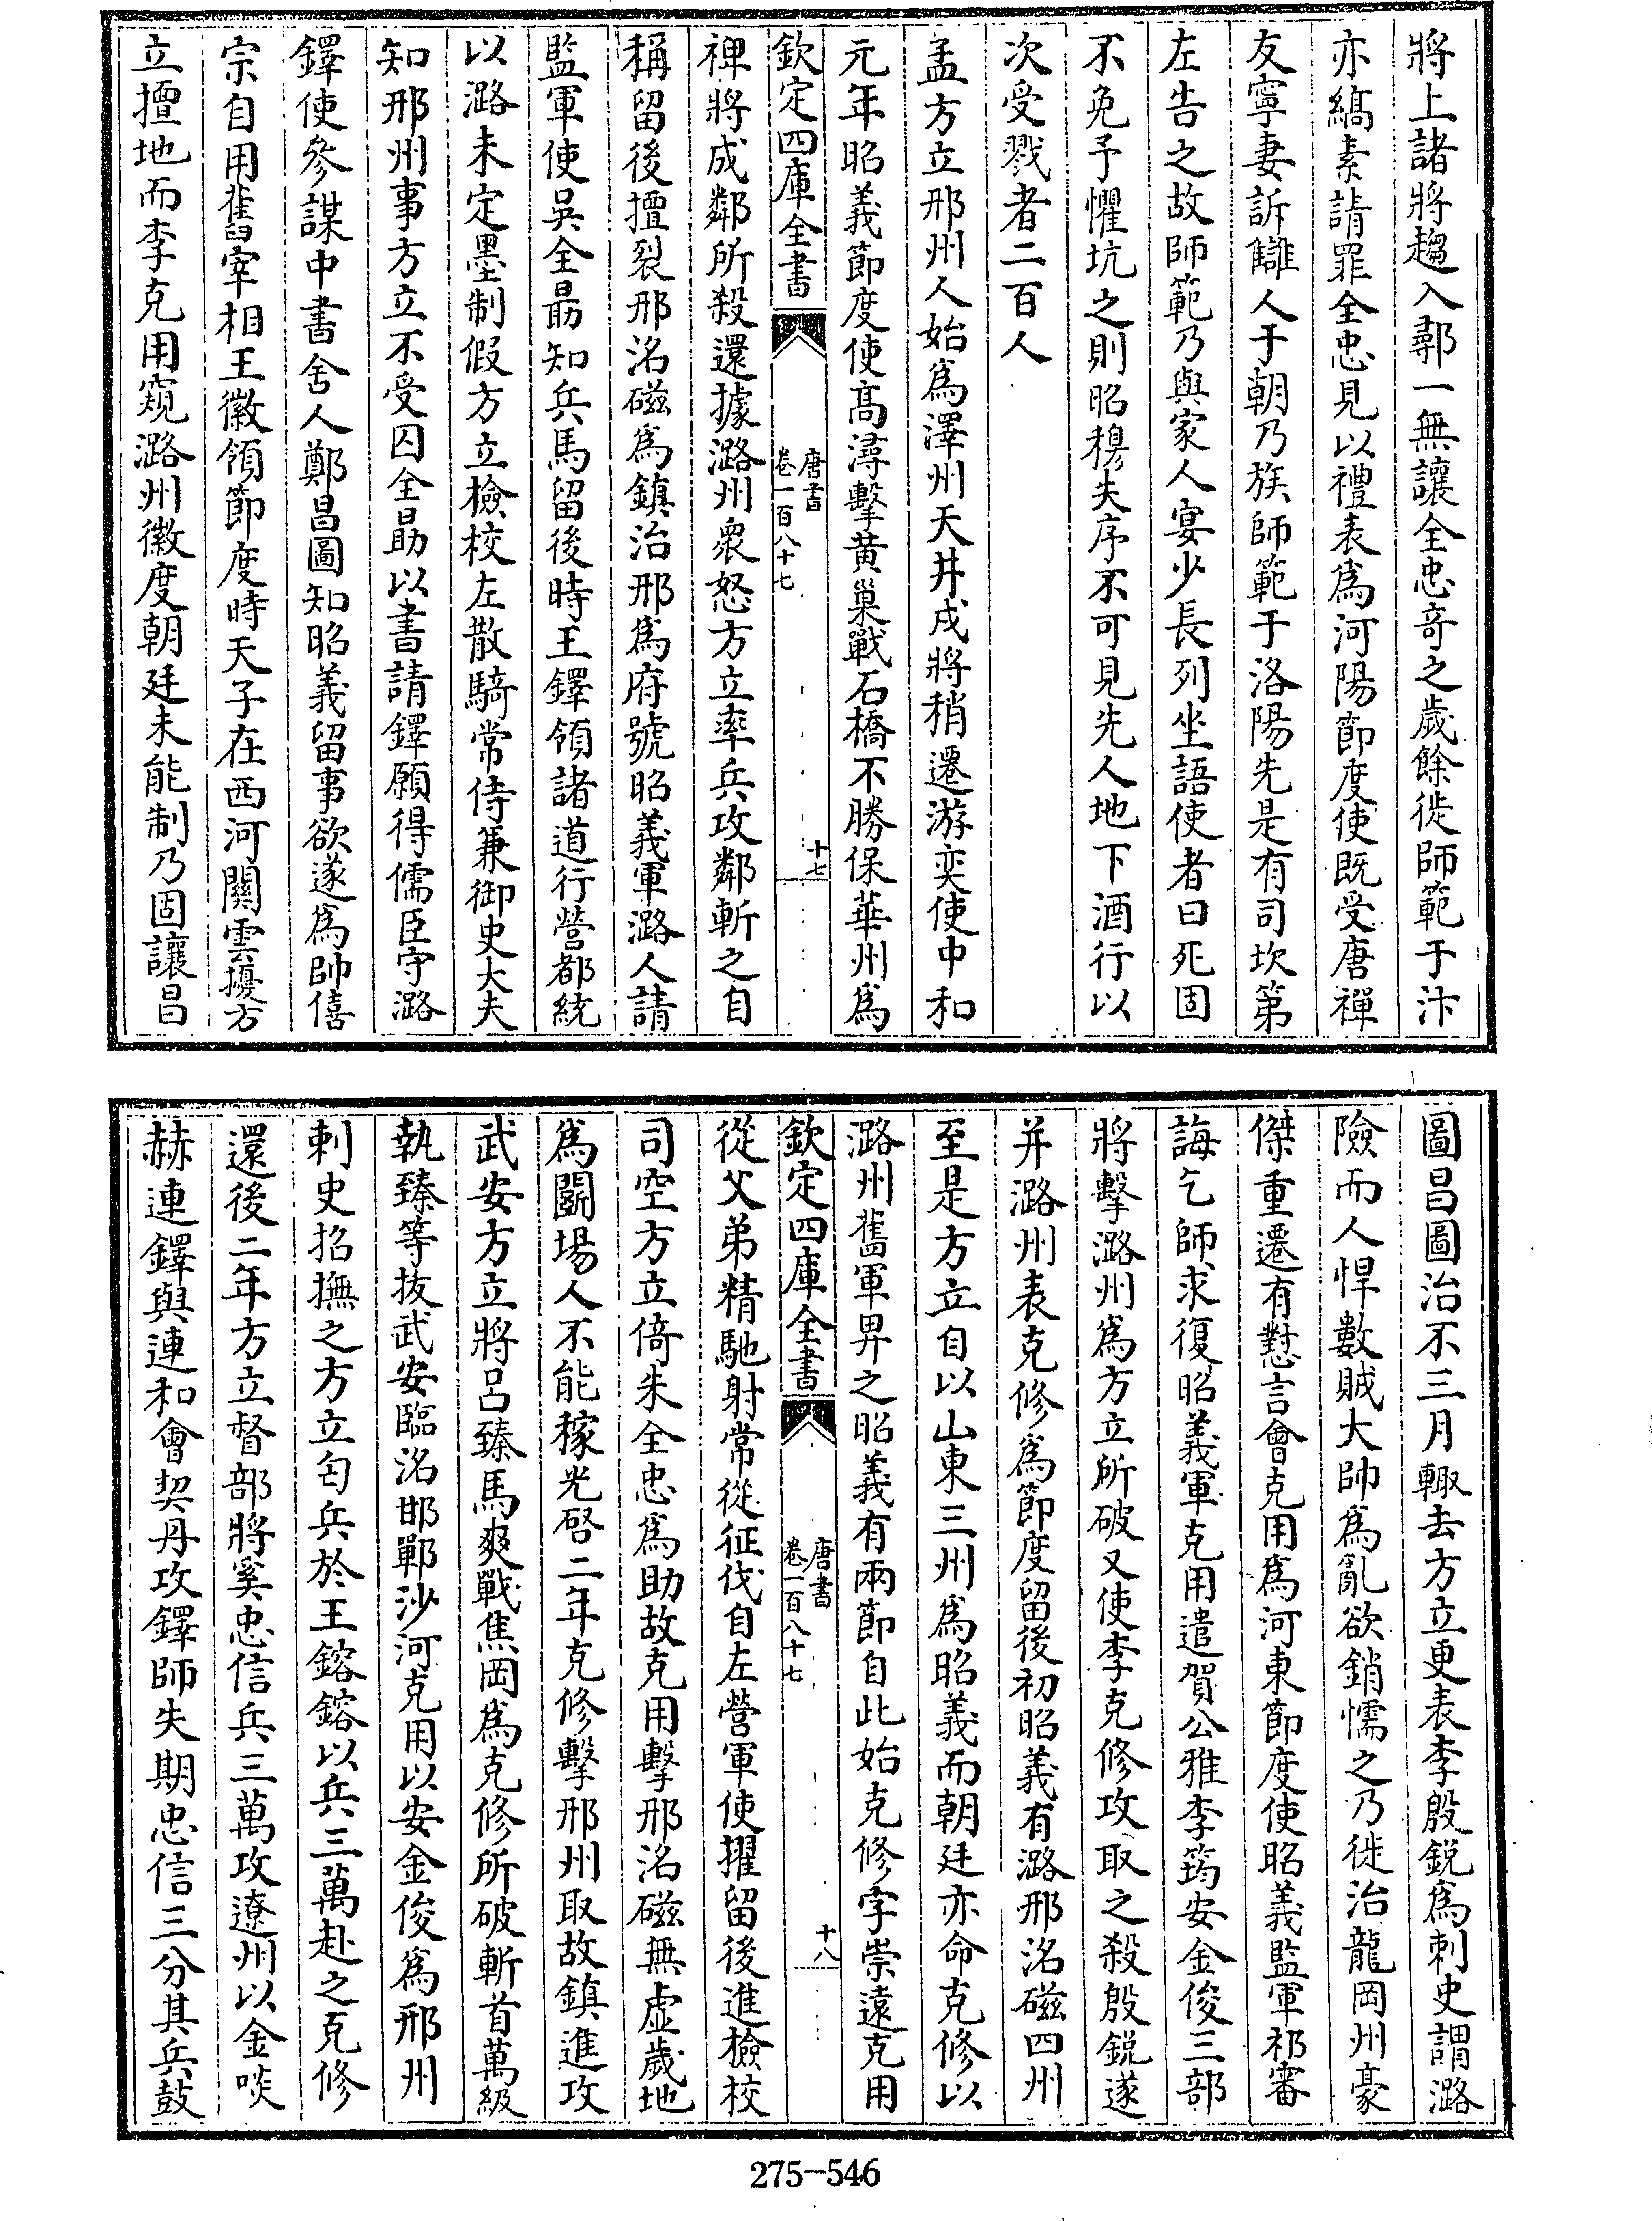 將上諸將趨入鄆一無讓全忠奇之歲餘徙師範于汴
亦縞素請罪全忠見以禮表爲河陽節度使既受唐禪
友寧妻訴讎人于朝乃族師範于洛陽先是有司坎第
左告之故師範乃與家人宴少長列坐語使者曰死固
不免予懼坑之則昭穆失序不可見先人地下酒行以
次受戮者二百人
孟方立邢州人始爲澤州天井戍將稍遷游奕使中和
元年昭義節度使髙潯擊黄巢戰石橋不勝保華州爲
欽定四庫全書
唐書
卷一百八十七
十七
裨將成鄰所殺還據潞州衆怒方立率兵攻鄰斬之自
稱留後擅裂邢洺磁爲鎮治邢爲府號昭義軍潞人請
監軍使吳全勗知兵馬留後時王鐸領諸道行營都統
以潞未定墨制假方立檢校左散騎常侍兼御史大夫
知邢州事方立不受囚全勗以書請鐸願得儒臣守潞
鐸使參謀中書舍人鄭昌圖知昭義留事欲遂爲帥僖
宗自用舊宰相王徽領節度時天子在西河關雲擾方
立擅地而李克用窺潞州徽度朝廷未能制乃固讓昌
圖昌圖治不三月輙去方立更表李殷鋭爲刺史謂潞
險而人悍數賊大帥爲亂欲銷懦之乃徙治龍岡州豪
傑重遷有懟言會克用爲河東節度使昭義監軍祁審
誨乞師求復昭義軍克用遣賀公雅李筠安金俊三部
將擊潞州爲方立所破又使李克修攻取之殺殷鋭遂
并潞州表克修爲節度留後初昭義有潞邢洺磁四州
至是方立自以山東三州爲昭義而朝廷亦命克修以
潞州舊軍畀之昭義有兩節自此始克修字崇遠克用
欽定四庫全書
唐書
卷一百八十七
十八
從父弟精馳射常從征伐自左營軍使擢留後進檢校
司空方立倚朱全忠爲助故克用擊邢洺磁無虚歲地
爲鬬場人不能稼光啓二年克修擊邢州取故鎮進攻
武安方立將呂臻馬爽戰焦岡爲克修所破斬首萬級
執臻等拔武安臨洺邯鄲沙河克用以安金俊爲邢州
刺史招撫之方立丐兵於王鎔鎔以兵三萬赴之克修
還後二年方立督部將奚忠信兵三萬攻遼州以金啖
赫連鐸與連和會契丹攻鐸師失期忠信三分其兵鼓
275-546